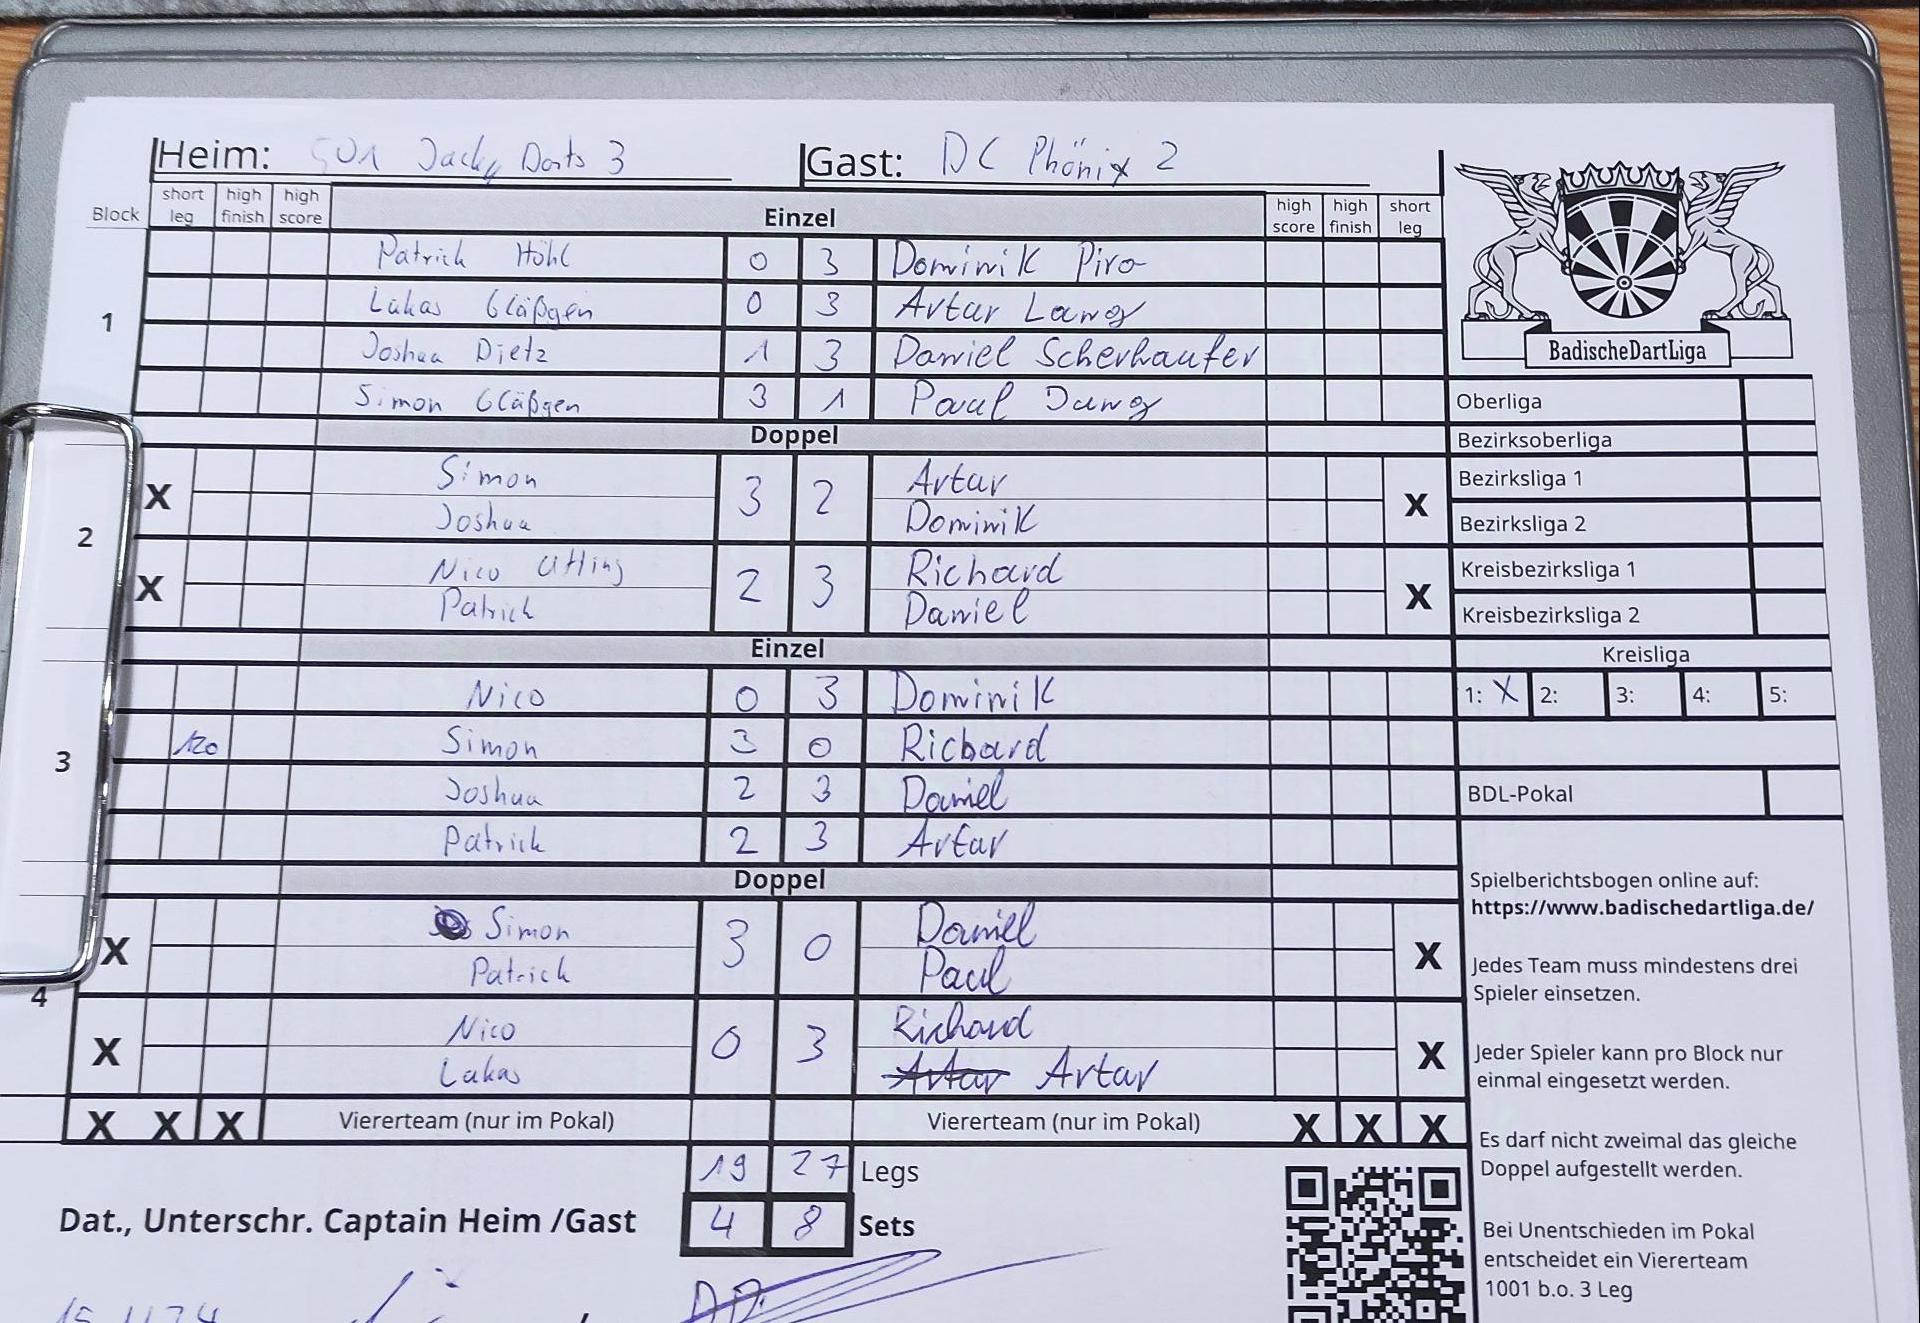 Heim: 501 Jacky Darts 3 Gast: DC Phönix 2
Block short leg high finish high score Einzel high score high finish short leg
1
Patrick Höhl 0 3 Dominik Piro
Lukas Gläßgen 0 3 Artar Lang
Joshua Dietz 1 3 Daniel Scherhaufer
Simon Gläßgen 3 1 Paul Jang
Doppel
2
X Simon 3 2 Artar X
Joshua Dominik
X Nico 2 3 Richard X
Patrick Daniel
Einzel
3
Nico 0 3 Dominik
120 Simon 3 0 Richard
Joshua 2 3 Daniel
Patrick 2 3 Artar
Doppel
4
X Simon 3 0 Daniel X
Patrick Paul
X Nico 0 3 Richard X
Lukas Artar Artar
X X X Viererteam (nur im Pokal) Viererteam (nur im Pokal) X X X
19 27 Legs
Dat., Unterschr. Captain Heim /Gast 4 8 Sets
BadischeDartLiga
Oberliga
Bezirksoberliga
Bezirksliga 1
Bezirksliga 2
Kreisbezirksliga 1
Kreisbezirksliga 2
Kreisliga
1: X 2: 3: 4: 5:
BDL-Pokal
Spielberichtsbogen online auf:
https://www.badischedartliga.de/
Jedes Team muss mindestens drei
Spieler einsetzen.
Jeder Spieler kann pro Block nur
einmal eingesetzt werden.
Es darf nicht zweimal das gleiche
Doppel aufgestellt werden.
Bei Unentschieden im Pokal
entscheidet ein Viererteam
1001 b.o. 3 Leg